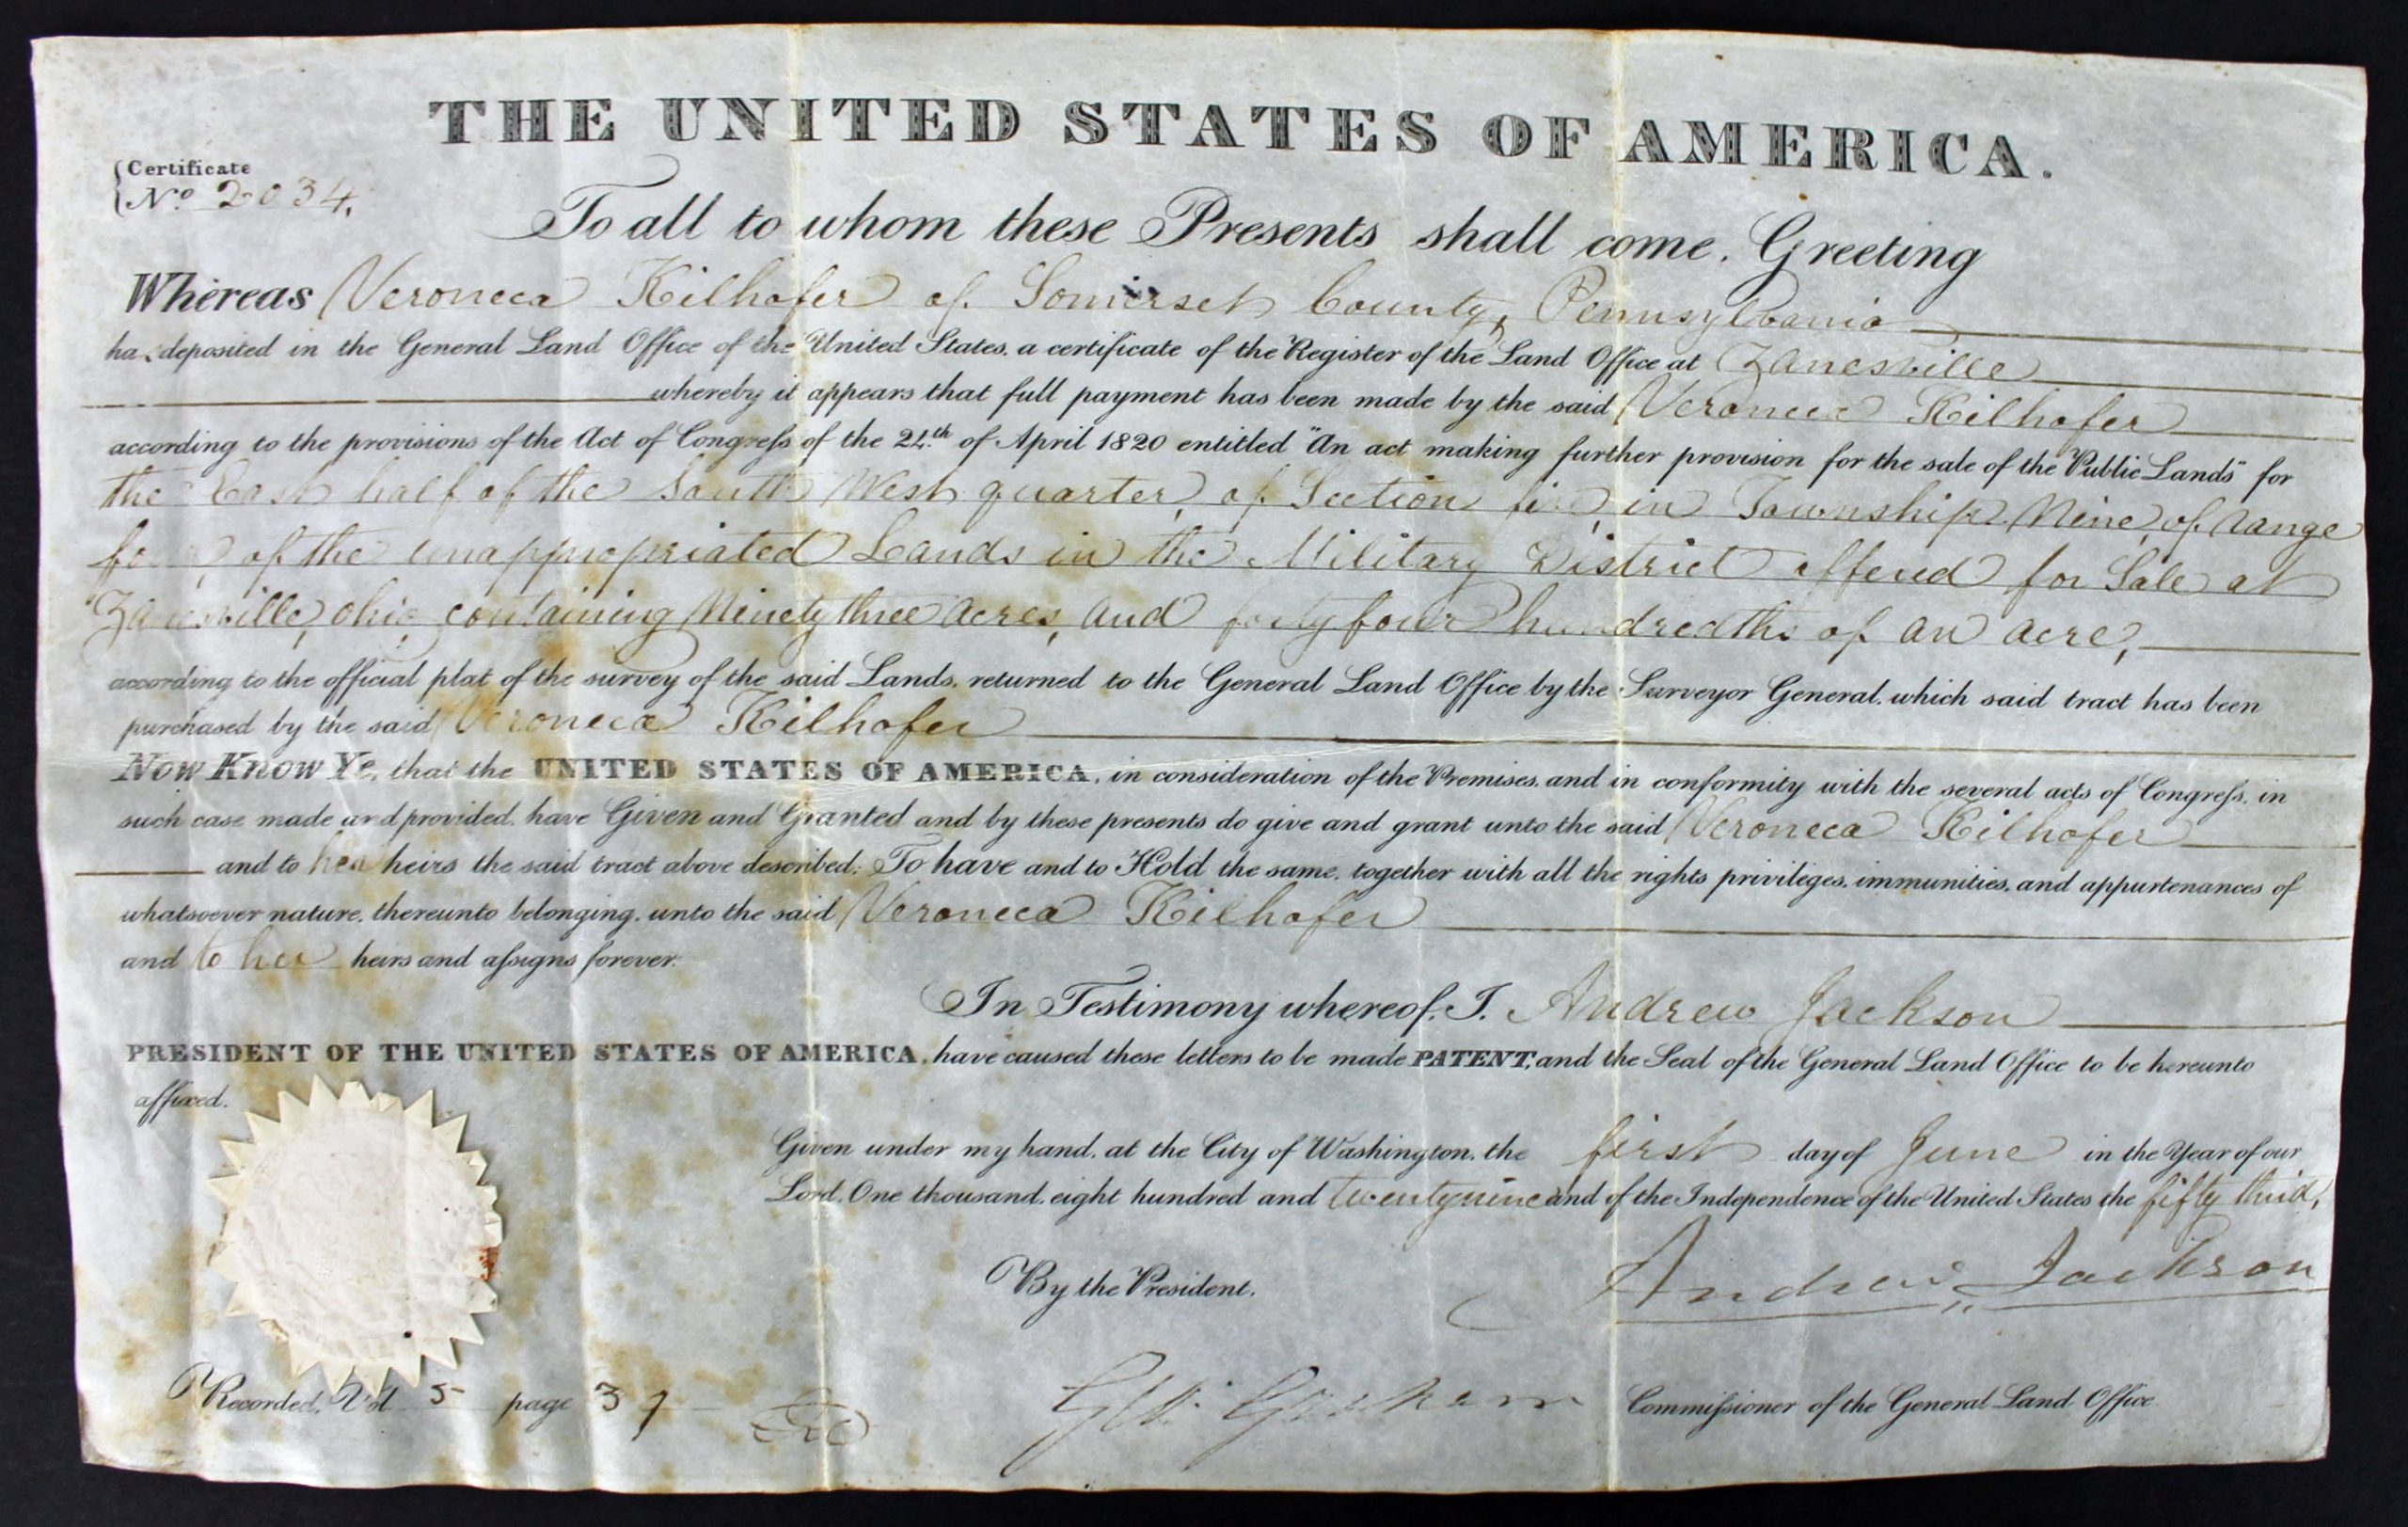 THE UNITED STATES OF AMERICA.
Certificate
No. 2034.
To all to whom these Presents shall come, Greeting
Whereas Veroneca Kilhofer of Somerset County, Pennsylvania
has deposited in the General Land Office of the United States, a certificate of the Register of the Land Office at Zanesville
whereby it appears that full payment has been made by the said Veroneca Kilhofer
according to the provisions of the Act of Congress of the 24th of April 1820 entitled "An act making further provision for the sale of the Public Lands" for
the East half of the South West quarter, of Section in Township Nine, of range
four, of the unappropriated Lands in the Military District offered for Sale at
Zanesville, Ohio, containing Ninety three acres, and forty four hundredths of an acre,
according to the official plat of the survey of the said Lands, returned to the General Land Office by the Surveyor General, which said tract has been
purchased by the said Veroneca Kilhofer
Now Know Ye, that the UNITED STATES OF AMERICA, in consideration of the Premises, and in conformity with the several acts of Congress, in
such case made and provided, have Given and Granted and by these presents do give and grant unto the said Veroneca Kilhofer
and to her heirs the said tract above described: To have and to Hold the same, together with all the rights privileges, immunities, and appurtenances of
whatsoever nature, thereunto belonging, unto the said Veroneca Kilhofer
and to her heirs and assigns forever.
In Testimony whereof, I, Andrew Jackson
PRESIDENT OF THE UNITED STATES OF AMERICA, have caused these letters to be made PATENT, and the Seal of the General Land Office to be hereunto
affixed.
Given under my hand, at the City of Washington, the first day of June in the Year of our
Lord, One thousand, eight hundred and twenty nine and of the Independence of the United States the fifty third,
Andrew Jackson
By the President.
G.W. Graham Commissioner of the General Land Office
Recorded, Vol. 5 page 37